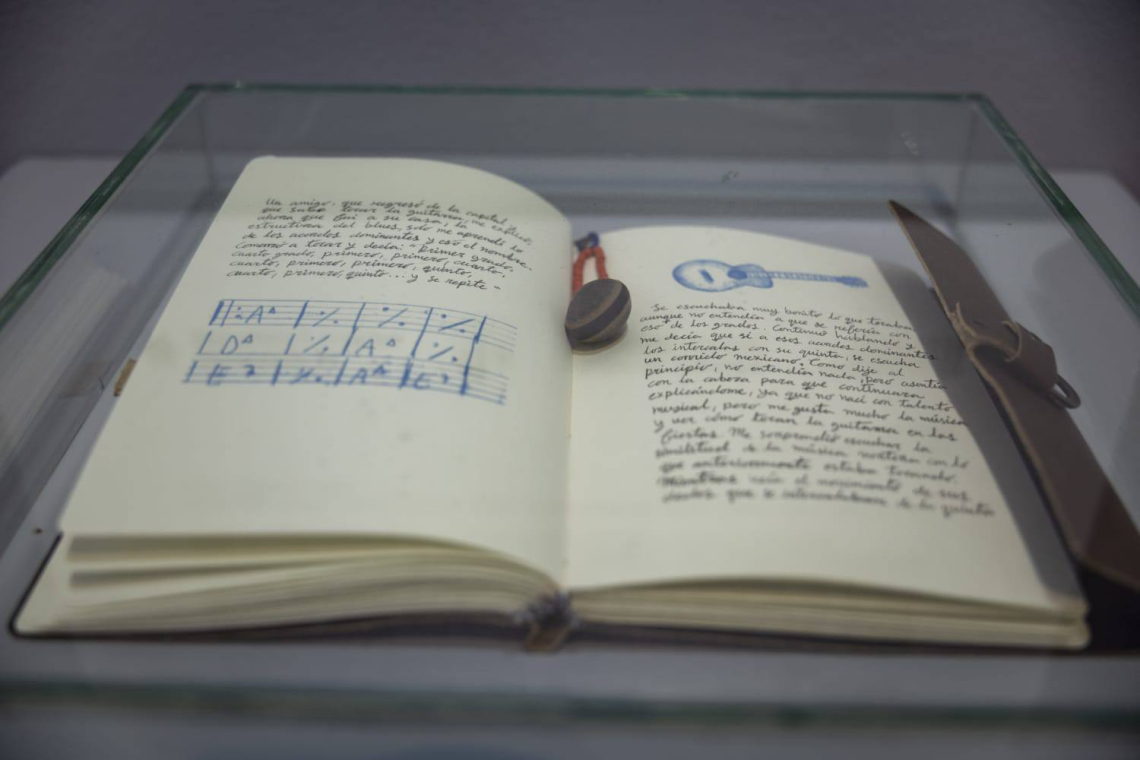 Un amigo, que regresó de la capital,
que sabe tocar la guitarra, me explicó,
ahora que fui a su casa, la
estructura del blues, solo me aprendí lo
de los acordes dominantes y eso el nombre.
Comenzó a tocar y decía: "Primer grado,
cuarto grado, primero, primero, cuarto,
cuarto, primero, primero, quinto,
cuarto, primero, quinto... y se repite"
A△ ٪ ٪ ٪
D△ ٪ A△ ٪
E7 ٪ A△ E7
Se escuchaba muy bonito lo que tocaba
aunque no entendía a que se refería con
eso de los grados. Continuó hablando y
me decía que si a esos acordes dominantes
los intercalas con su quinta, se escucha
un corrido mexicano. Como dije al
principio, no entendía nada, pero asentía
con la cabeza para que continuara
explicándome, ya que no nací con talento
musical, pero me gusta mucho la música
y ver cómo tocan la guitarra en las
fiestas. Me sorprendió escuchar la
similitud de la música norteña con lo
que anteriormente estaba tocando.
Mientras veía el movimiento de sus
dedos que se intercalaban de la quinta